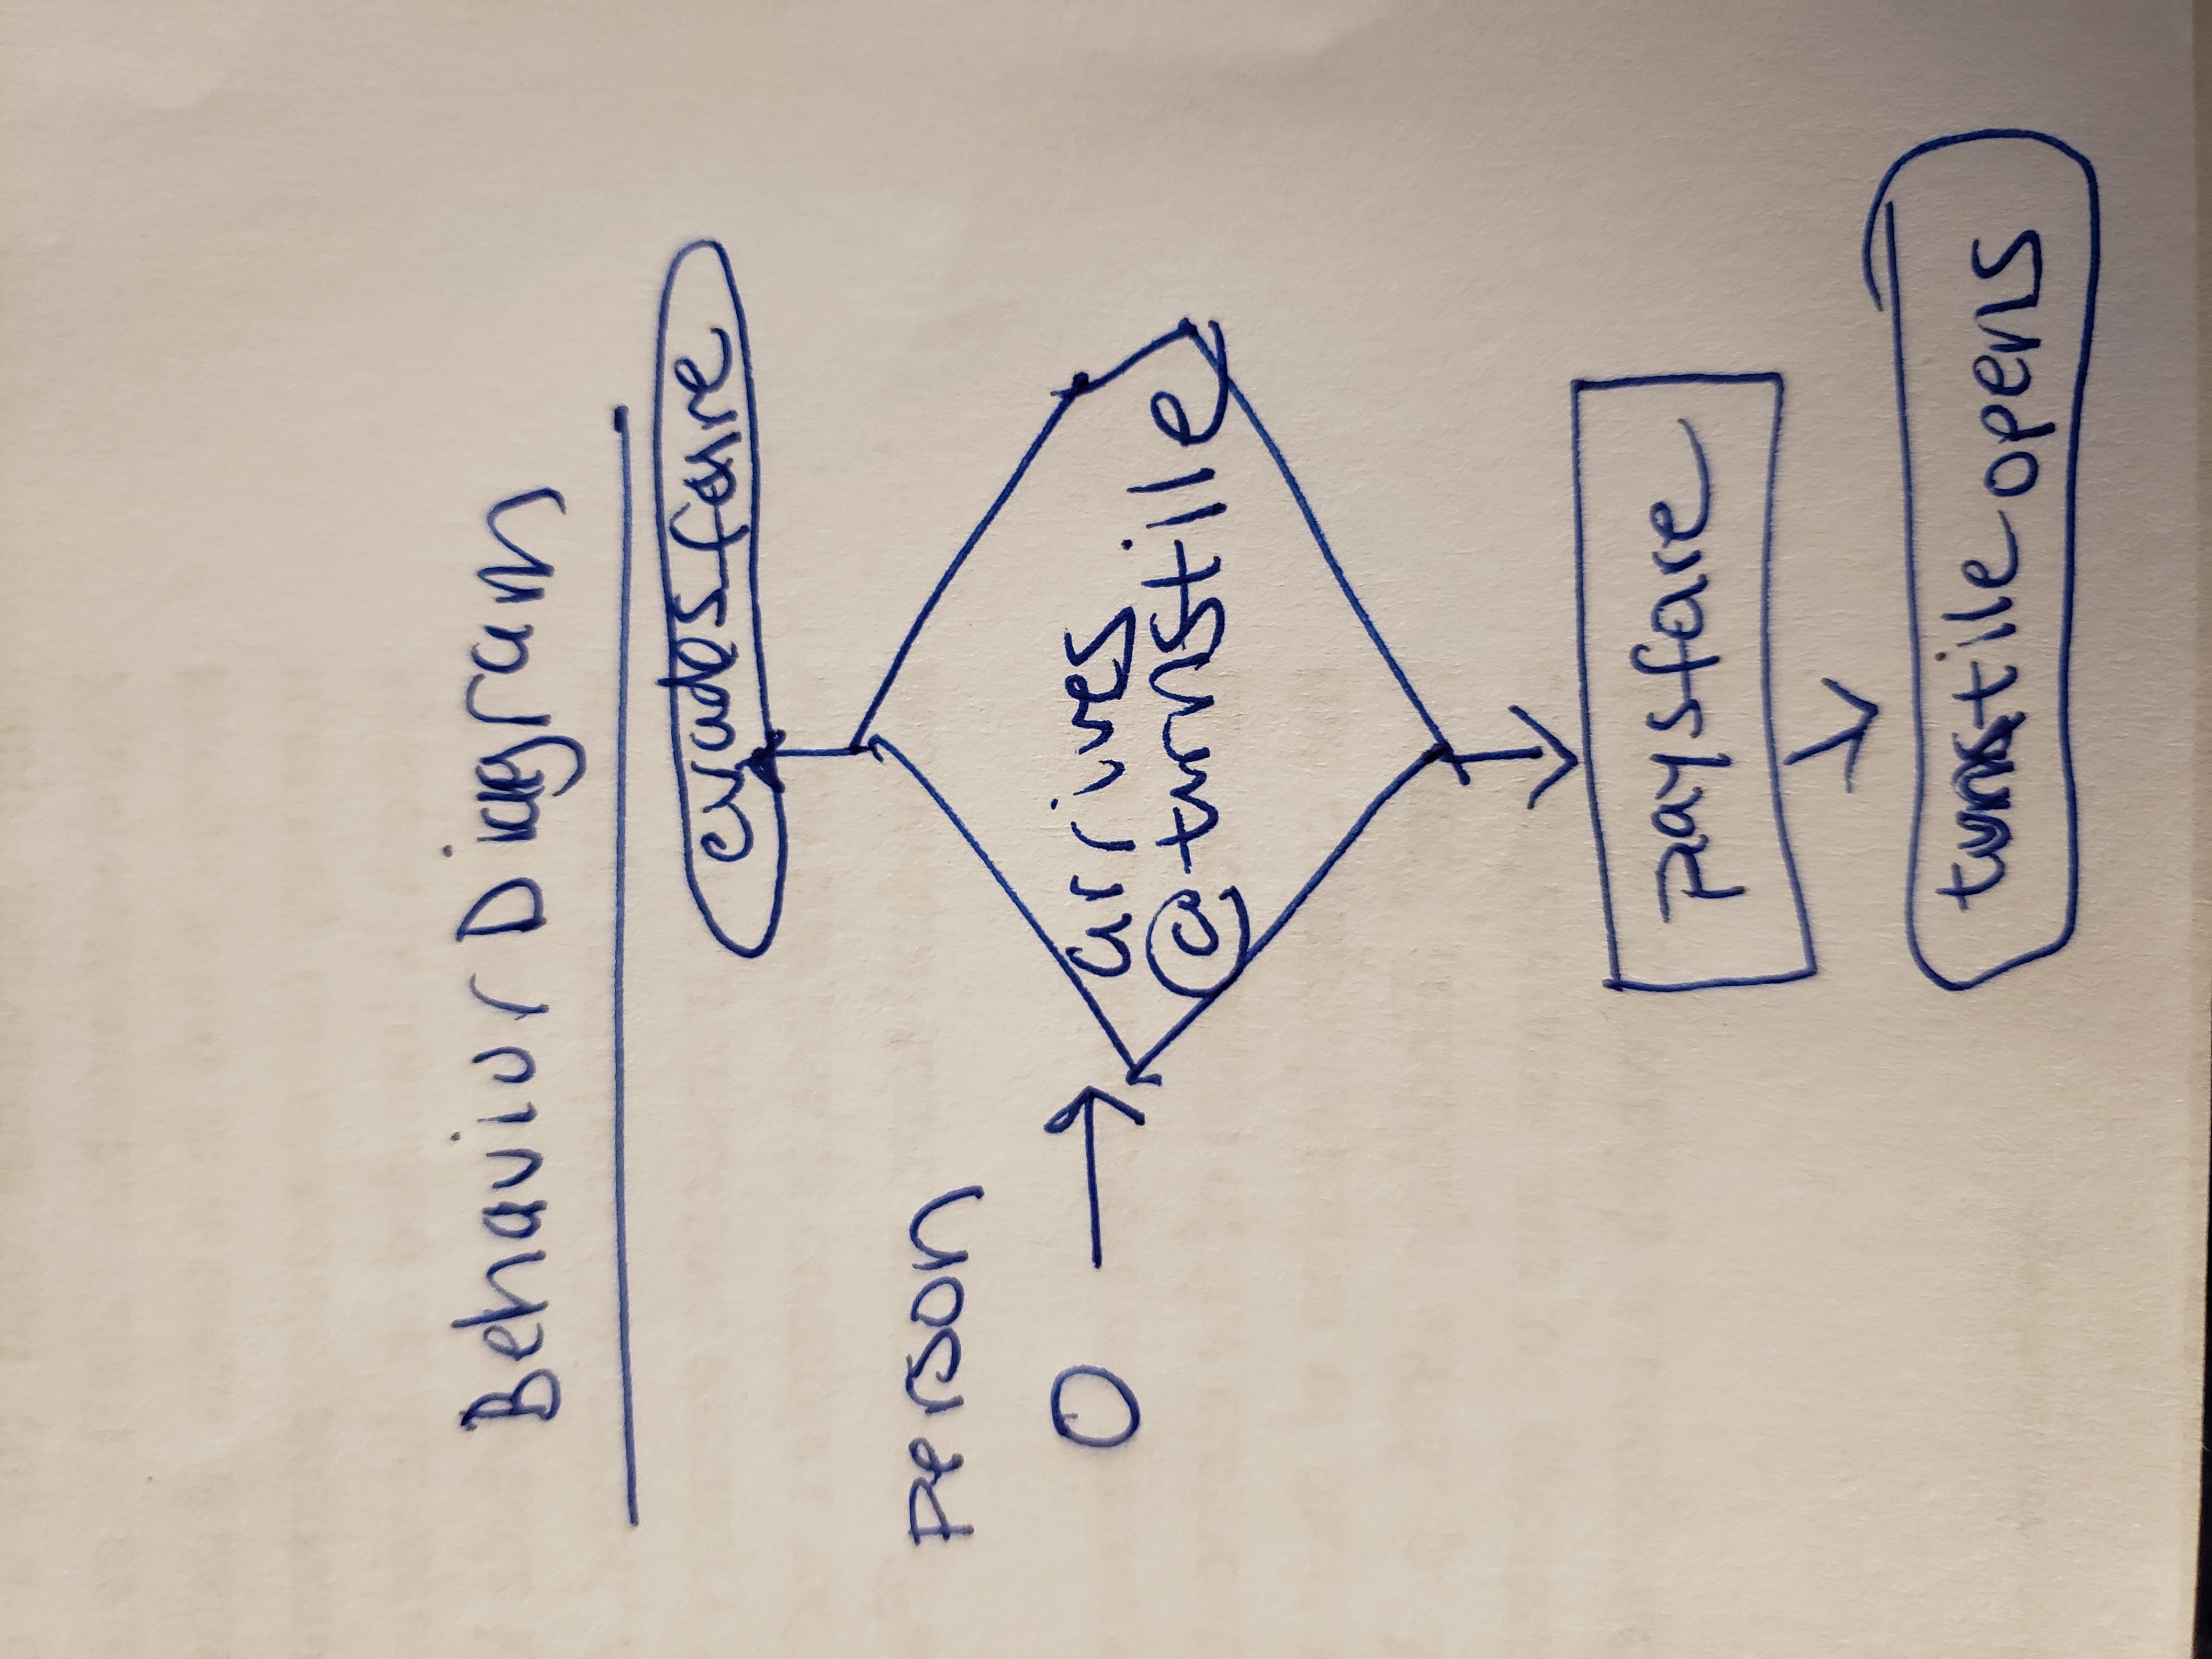 Behavior Diagram
evades fare
person
arrives
@turnstile
pays fare
turnstile opens